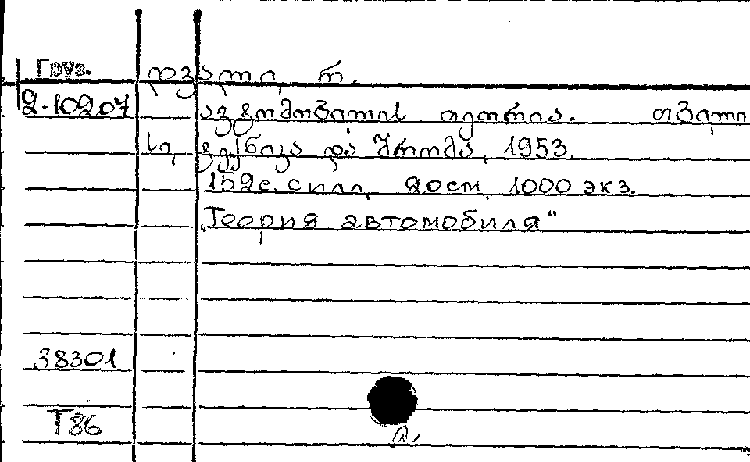 Груз.
2-10207
დვალი, რ.
ავტომობილის თეორია. თბილი
სი, ტექნიკა და შრომა, 1953.
152с. с илл. 20см. 1000 экз.
„Теория автомобиля"
38301
Т86